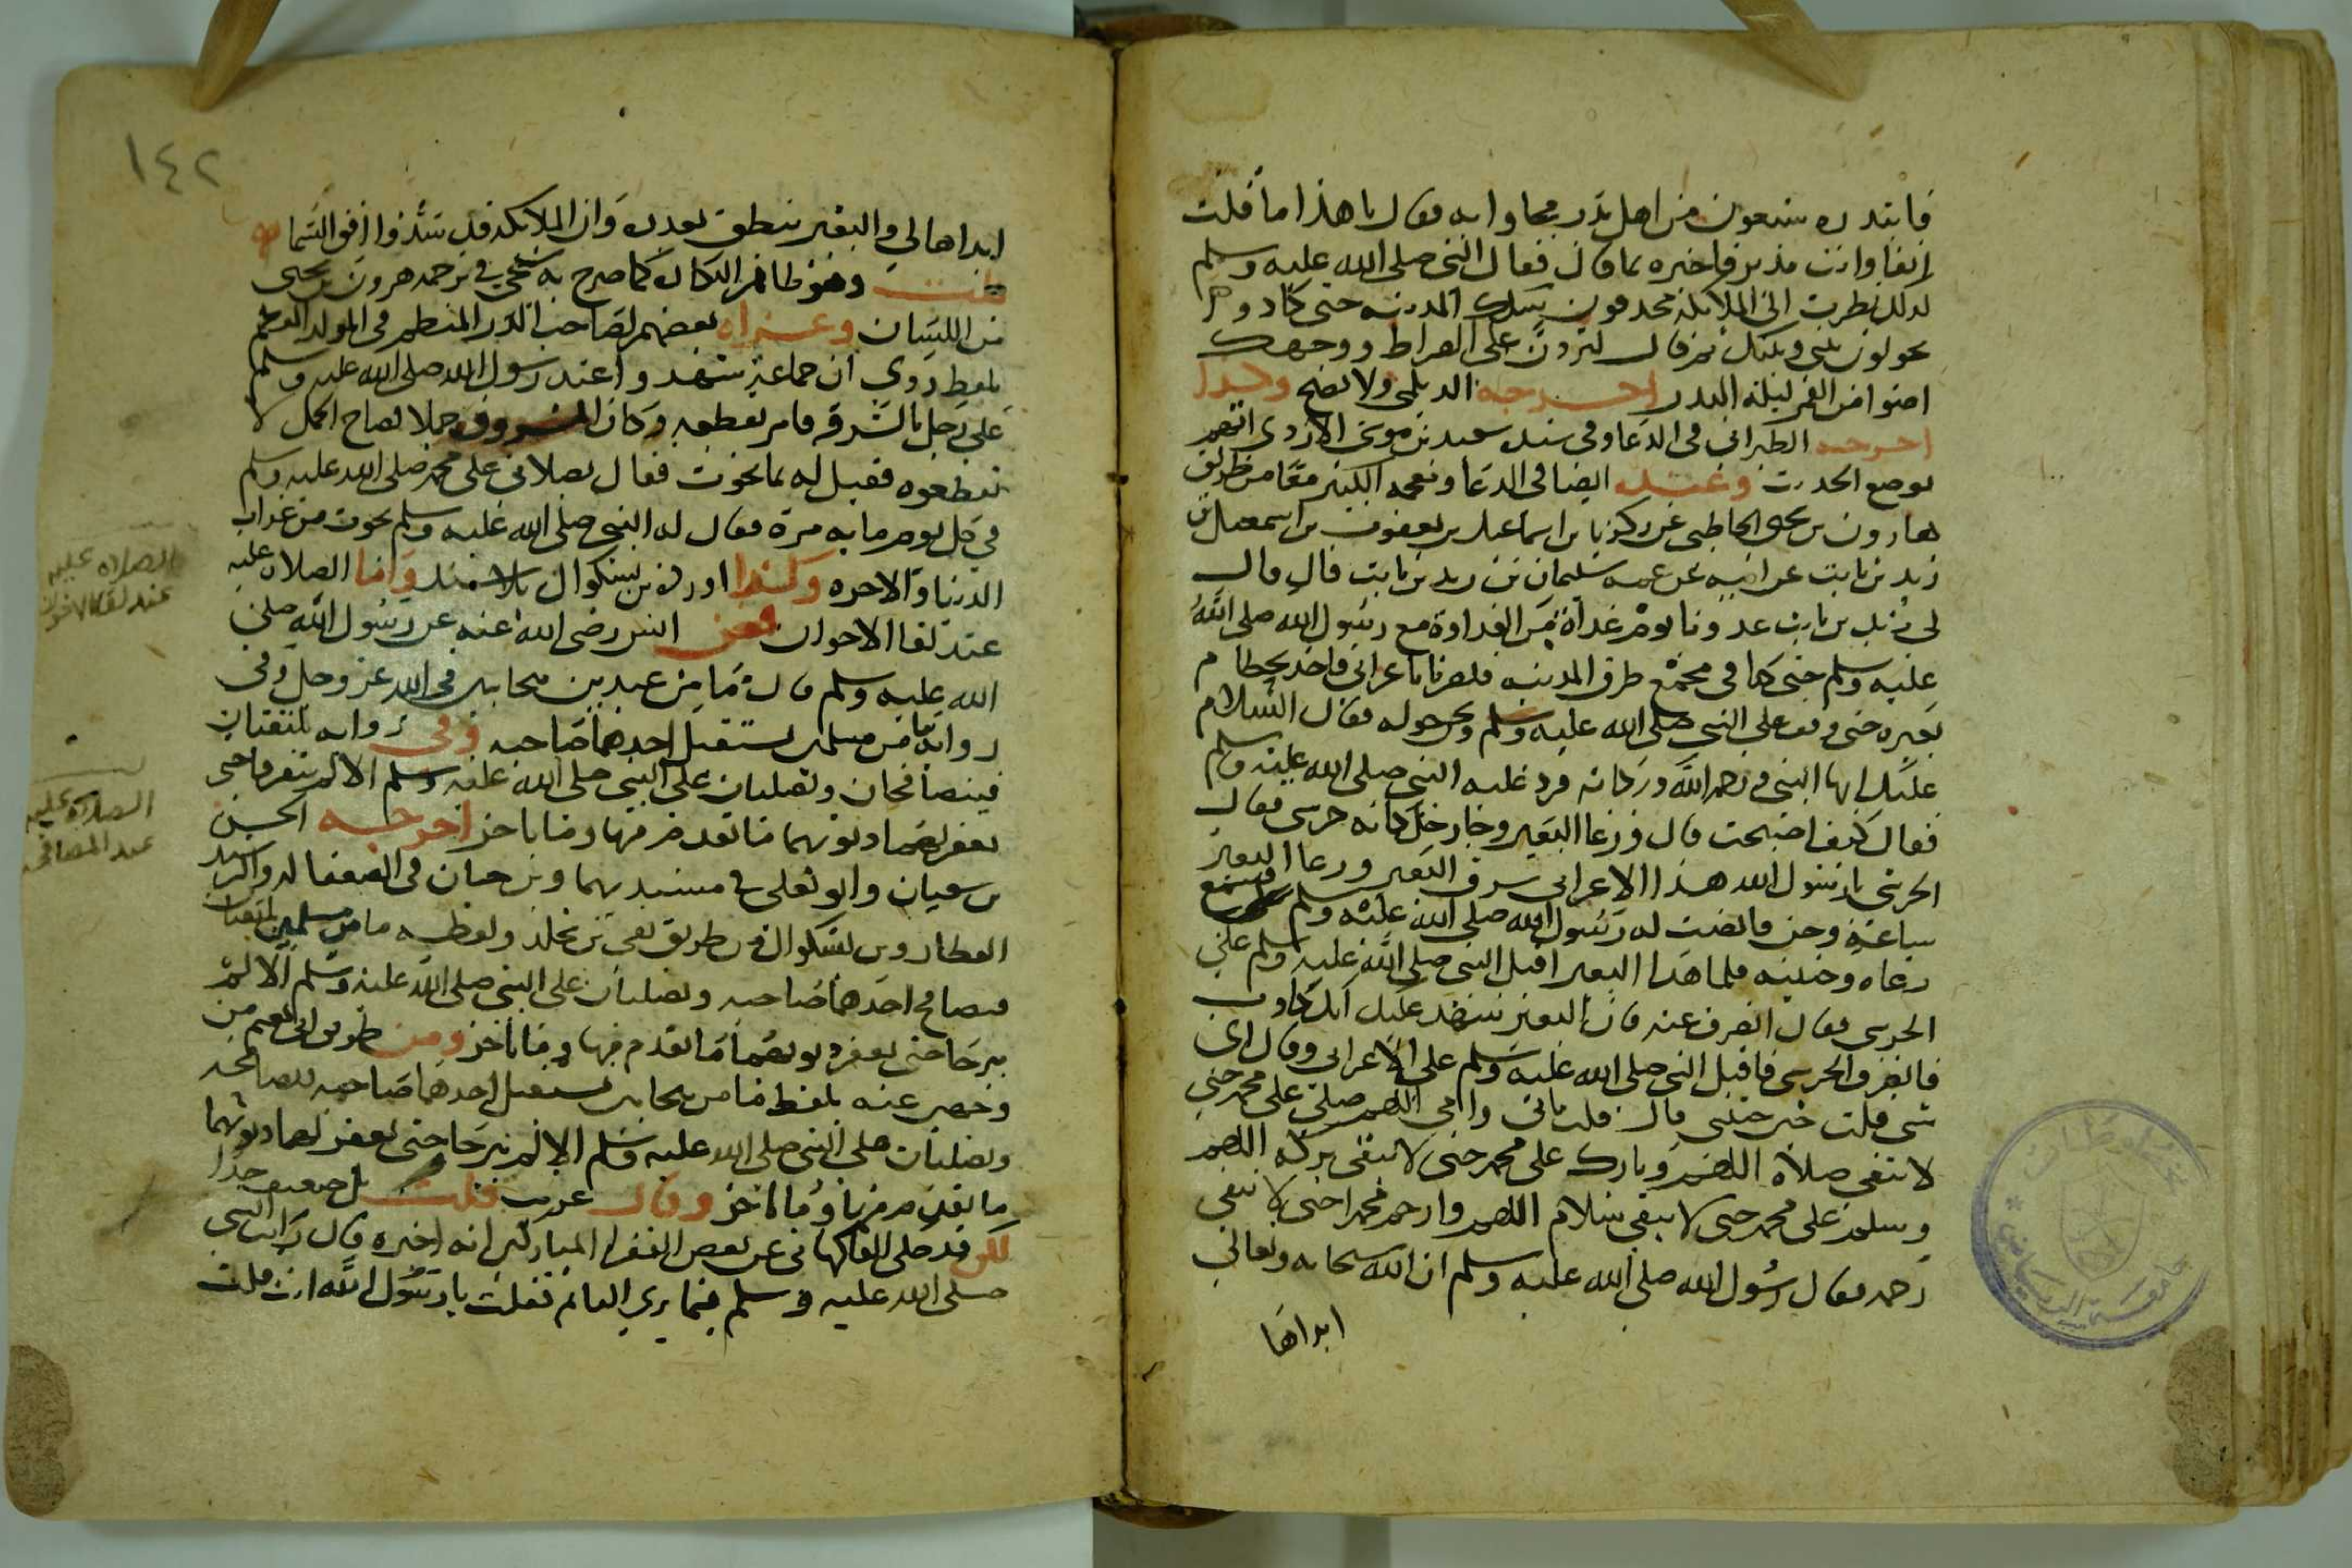 فابتدره سبعون من اهل بدر فجاوا به فقال يا هذا ما قلت
انفا وانت مدبر فاخبره بما قال فقال النبي صلى الله عليه وسلم
لذلك نظرت الى الملائكة محدقون سكك المدينة حتى كادوا
يحولون بيني وبينك ثم قال لتردن على الصراط ووجهك
اضوا من القمر ليلة البدر اخرجه الديلمي ولا يصح وكذا
اخرجه الطبراني في الدعا وفي سنده سعيد بن موسى الازدي اتهم
بوضع الحديث وعنده ايضا في الدعا ومعجمه الكبير معا من طريق
هارون بن يحيى الحاطبي عن زكريا بن اسماعيل بن يعقوب بن اسمعيل بن
زيد بن ثابت عن ابيه عن عمه سليمان بن زيد بن ثابت قال قال
لي زيد بن ثابت غدونا يوم غداة من الغداوة مع رسول الله صلى الله
عليه وسلم حتى كنا في مجمع طرق المدينة فبصرنا باعرابي فاخذ بخطام
بعيره حتى وقف على النبي صلى الله عليه وسلم ونحن حوله فقال السلام
عليك ايها النبي ورحمة الله وبركاته فرد عليه النبي صلى الله عليه وسلم
فقال كيف اصبحت قال ورغا البعير وجا رجل كانه حرسي فقال
الحرسي يا رسول الله هذا الاعرابي سرق البعير ورغا البعير
ساعة وحن فانصت له رسول الله صلى الله عليه وسلم فسمع
رغاه وحنينه فلما هدا البعير اقبل النبي صلى الله عليه وسلم على
الحرسي فقال انصرف عنه فان البعير شهد عليك انك كاذب
فانصرف الحرسي فاقبل النبي صلى الله عليه وسلم على الاعرابي وقال اي
شي قلت حين جئتني قال قلت بابي وامي اللهم صلي على محمد حتى
لا تبقى صلاة اللهم وبارك على محمد حتى لا تبقى بركة اللهم
وسلم على محمد حتى لا يبقى سلام اللهم وارحم محمدا حتى لا تبقى
رحمة فقال رسول الله صلى الله عليه وسلم ان الله سبحانه وتعالى
ابداها
١٤٢
ابداها لي والبعير ينطق بعذره وان الملائكة قد سدوا افق السما
قلت وهو ظاهر النكارة كما صرح به شيخي في ترجمة هرون بن يحيى
من اللسان وعزاه بعضهم لصاحب الدر المنظم في المولد المعظم
بلفظ روي ان جماعة شهدوا عند رسول الله صلى الله عليه وسلم
على رجل بالسرقة فامر بقطعه وكان المسروق جملا فصاح الجمل لا
تقطعوه فقيل له بما نجوت فقال بصلاتي على محمد صلى الله عليه وسلم
في كل يوم ماية مرة فقال له النبي صلى الله عليه وسلم نجوت من عذاب
الدنيا والاخره وكذا اورده بن بشكوال بلا سند واما الصلاة عليه
عند لقا الاخوان فعن انس رضي الله عنه عن رسول الله صلى
الله عليه وسلم قال ما من عبدين متحابين في الله عز وجل وفي
رواية ما من مسلمين يستقبل احدهما صاحبه وفي رواية يلتقيان
فيتصافحان ويصليان على النبي صلى الله عليه وسلم الا لم يتفرقا حتى
يغفر لهما ذنوبهما ما تقدم منها وما تاخر اخرجه الحسن
بن سفيان وابو يعلى في مسنديهما وبن حبان في الضعفا له والرشيد
العطار وبن بشكوال من طريق بقي بن مخلد ولفظه ما من مسلمين يلتقيان
فيصافح احدهما صاحبه ويصليان على النبي صلى الله عليه وسلم الا لم
يبرحا حتى يغفر ذنوبهما ما تقدم منها وما تاخر ومن طريق ابي نعيم من
وخص عنه بلفظ ما من متحابين يستقبل احدهما صاحبه فيصافحه
ويصليان على النبي صلى الله عليه وسلم الا لم يبرحا حتى يغفر لهما ذنوبهما
ما تقدم منها وما تاخر وقال غريب قلت بل ضعيف جدا
لكن قد حكى الفاكهاني عن بعض الفقرا المباركين انه اخبره قال رايت النبي
صلى الله عليه وسلم فيما يرى النائم فقلت يا رسول الله انت قلت
الصلاة عليه
عند لقا الاخوان
الصلاة عليه
عند المصافحة
جامعة الرياض